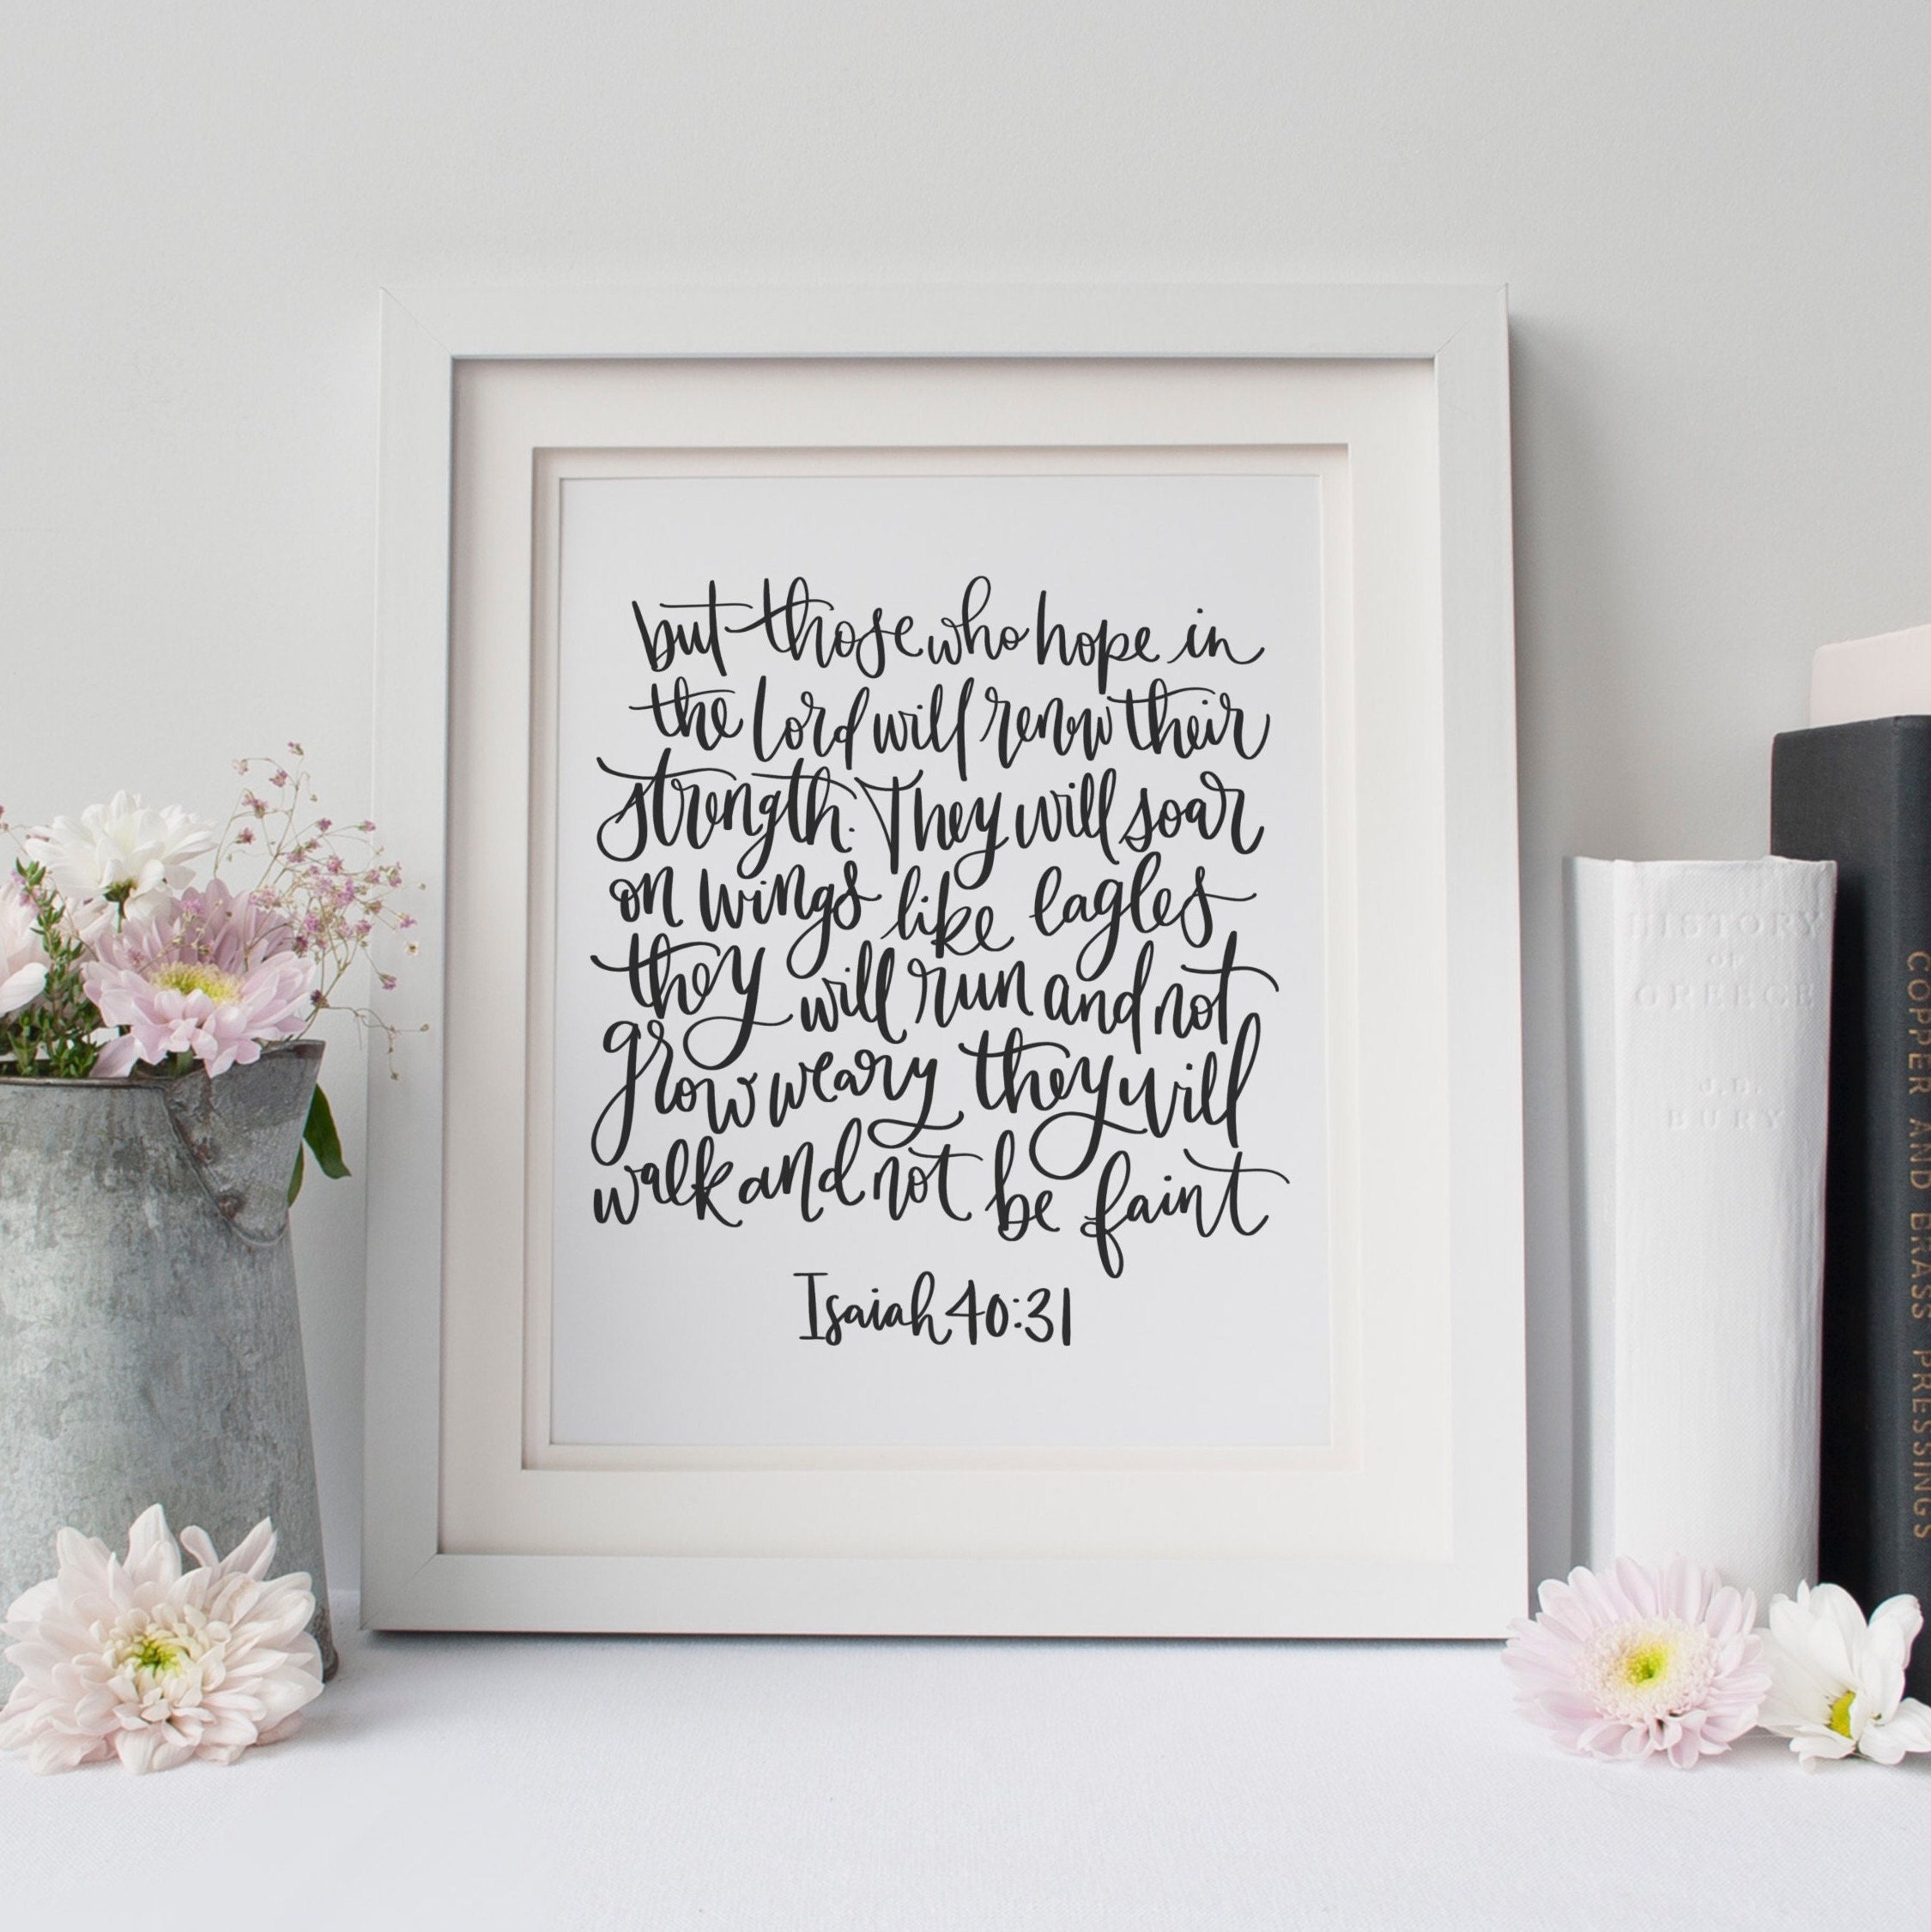 but those who hope in
the Lord will renew their
strength. They will soar
on wings like eagles
they will run and not
grow weary they will
walk and not be faint
Isaiah 40:31
HISTORY
OF
GREECE
J.B.
BURY
COPPER AND BRASS PRESSINGS